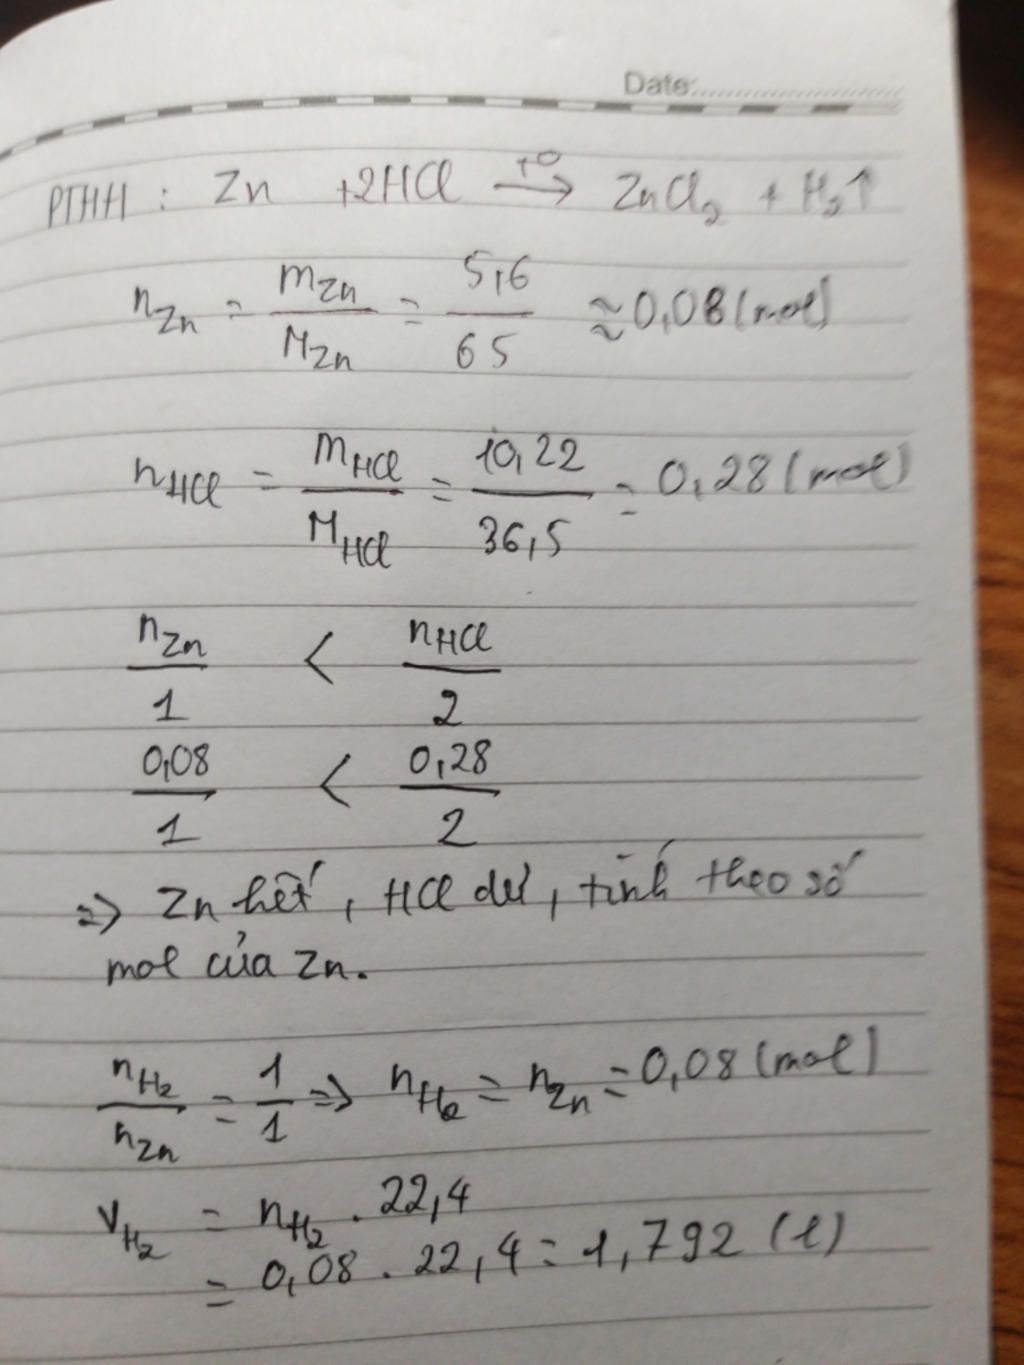 Date:
PTHH : Zn + 2HCl t° → ZnCl₂ + H₂↑
n_Zn = m_Zn / M_Zn = 5,6 / 65 ≈ 0,08 (mol)
n_HCl = m_HCl / M_HCl = 10,22 / 36,5 = 0,28 (mol)
n_Zn / 1 < n_HCl / 2
0,08 / 1 < 0,28 / 2
=> Zn hết, HCl dư, tính theo số
mol của Zn.
n_H₂ / n_Zn = 1 / 1 => n_H₂ = n_Zn = 0,08 (mol)
V_H₂ = n_H₂ . 22,4
= 0,08 . 22,4 = 1,792 (l)